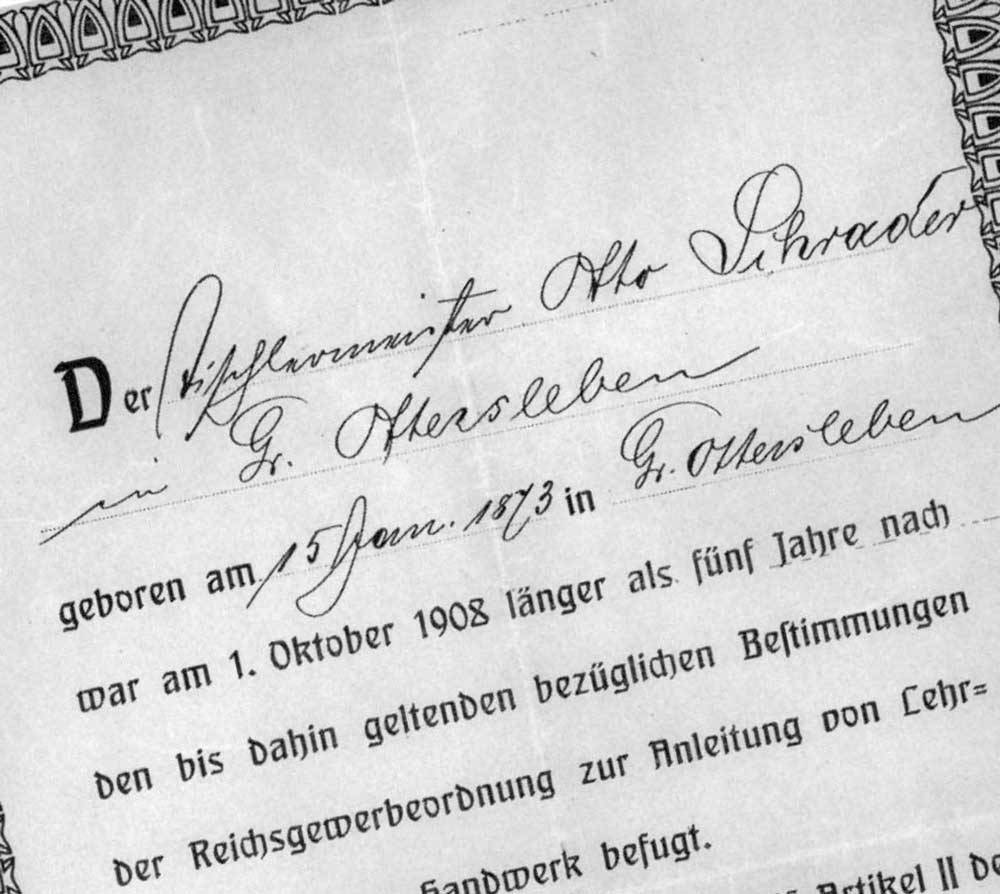 Der Tischlermeister Otto Schrader
in Gr. Ottersleben
geboren am 15 Jan. 1873 in Gr. Ottersleben
war am 1. Oktober 1908 länger als fünf Jahre nach
den bis dahin geltenden bezüglichen Bestimmungen
der Reichsgewerbeordnung zur Anleitung von Lehr=
handwerk befugt.
Artikel II